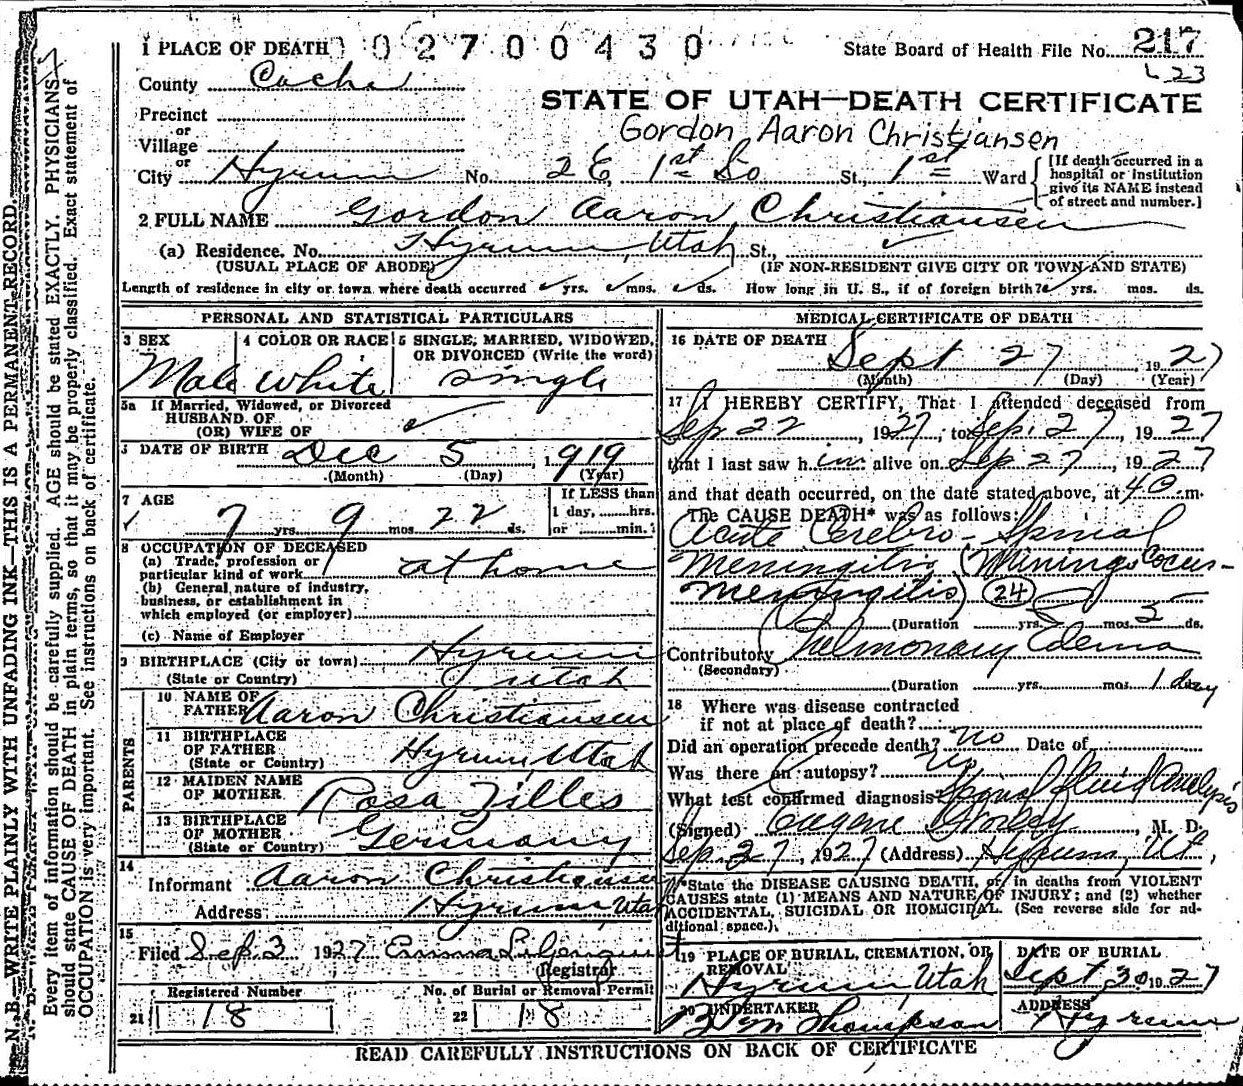 1 PLACE OF DEATH 02700430 State Board of Health File No. 217
23
County Cache
STATE OF UTAH—DEATH CERTIFICATE
Precinct
or
Village
Gordon Aaron Christiansen
or
City Hyrum No. 2 E, 1st So St., 1st Ward
[If death occurred in a
hospital or institution
give its NAME instead
of street and number.]
2 FULL NAME Gordon Aaron Christiansen
(a) Residence. No. Hyrum, Utah St.,
(USUAL PLACE OF ABODE) (IF NON-RESIDENT GIVE CITY OR TOWN AND STATE)
Length of residence in city or town where death occurred yrs. mos. ds. How long in U. S., if of foreign birth? yrs. mos. ds.
PERSONAL AND STATISTICAL PARTICULARS
3 SEX 4 COLOR OR RACE 5 SINGLE, MARRIED, WIDOWED,
OR DIVORCED (Write the word)
Male White Single
5a If Married, Widowed, or Divorced
HUSBAND OF
(OR) WIFE OF
DATE OF BIRTH Dec 5, 1919
(Month) (Day) (Year)
7 AGE
If LESS than
1 day, hrs.
or min.
7 yrs. 9 mos. 22 ds.
8 OCCUPATION OF DECEASED
(a) Trade, profession or
particular kind of work at home
(b) General nature of industry,
business, or establishment in
which employed (or employer)
(c) Name of Employer
9 BIRTHPLACE (City or town) Hyrum
(State or Country) Utah
PARENTS
10 NAME OF
FATHER Aaron Christiansen
11 BIRTHPLACE
OF FATHER Hyrum, Utah
(State or Country)
12 MAIDEN NAME
OF MOTHER Rosa Zilles
13 BIRTHPLACE
OF MOTHER Germany
(State or Country)
14
Informant Aaron Christiansen
Address Hyrum, Utah
15
Filed Sep. 3 1927 Emma
Registrar
Registered Number No. of Burial or Removal Permit
21 18 22 18
MEDICAL CERTIFICATE OF DEATH
16 DATE OF DEATH
Sept 27, 1927
(Month) (Day) (Year)
17 I HEREBY CERTIFY, That I attended deceased from
Sep 22, 1927, to Sep. 27, 1927
that I last saw him alive on Sep 27, 1927
and that death occurred, on the date stated above, at m.
The CAUSE DEATH* was as follows:
Acute Cerebro-Spinal
Meningitis (Miningococus-
meningitis) 24
(Duration yrs. mos. 5 ds.
Contributory Pulmonary Edema
(Secondary)
(Duration yrs. mos. 1 day
18 Where was disease contracted
if not at place of death?
Did an operation precede death? no Date of
Was there an autopsy?
What test confirmed diagnosis? Spinal fluid Analysis
(Signed) Eugene Worley, M. D.
Sep. 27, 1927 (Address) Hyrum, Ut,
*State the DISEASE CAUSING DEATH, or in deaths from VIOLENT
CAUSES state (1) MEANS AND NATURE OF INJURY; and (2) whether
ACCIDENTAL, SUICIDAL OR HOMICIDAL. (See reverse side for ad-
ditional space.)
19 PLACE OF BURIAL, CREMATION, OR
REMOVAL
Hyrum, Utah
DATE OF BURIAL
Sept 30 1927
20 UNDERTAKER
Thompson
ADDRESS
Hyrum
READ CAREFULLY INSTRUCTIONS ON BACK OF CERTIFICATE
N. B.—WRITE PLAINLY WITH UNFADING INK—THIS IS A PERMANENT RECORD.
Every item of information should be carefully supplied. AGE should be stated EXACTLY. PHYSICIANS
should state CAUSE OF DEATH in plain terms, so that it may be properly classified. Exact statement of
OCCUPATION is very important. See instructions on back of certificate.